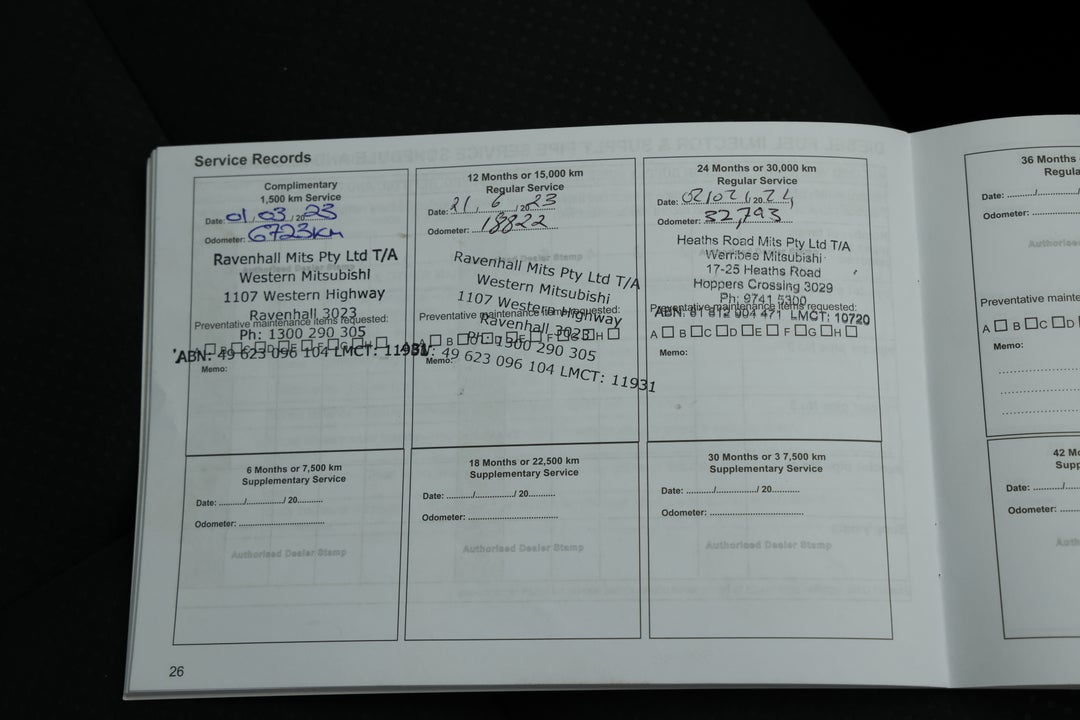 Service Records
Complimentary
1,500 km Service
Date: 01 / 03 / 20 23
Odometer: 6723km
Ravenhall Mits Pty Ltd T/A
Western Mitsubishi
1107 Western Highway
Ravenhall 3023
Preventative maintenance items requested:
Ph: 1300 290 305
A B C D E F G H
ABN: 49 623 096 104 LMCT: 11931
Memo:
12 Months or 15,000 km
Regular Service
Date: 21 / 6 / 20 23
Odometer: 18822
Ravenhall Mits Pty Ltd T/A
Western Mitsubishi
1107 Western Highway
Preventative maintenance items requested:
Ravenhall 3023
A B C D E F G H
Ph: 1300 290 305
ABN: 49 623 096 104 LMCT: 11931
Memo:
24 Months or 30,000 km
Regular Service
Date: 02/02/20 24
Odometer: 32,793
Heaths Road Mits Pty Ltd T/A
Werribee Mitsubishi
17-25 Heaths Road
Hoppers Crossing 3029
Ph: 9741 5300
Preventative maintenance items requested:
ABN: 81 812 904 471 LMCT: 10720
A B C D E F G H
Memo:
6 Months or 7,500 km
Supplementary Service
Date: ........./............../ 20..........
Odometer: ................................
Authorised Dealer Stamp
18 Months or 22,500 km
Supplementary Service
Date: ........./............../ 20..........
Odometer: ................................
Authorised Dealer Stamp
30 Months or 3 7,500 km
Supplementary Service
Date: ........./............../ 20..........
Odometer: ................................
Authorised Dealer Stamp
26
36 Months
Regula
Date: ........./..............
Odometer: ................
Authorise
Preventative maintenance
A B C D
Memo:
42 Mo
Supp
Date: ........./........
Odometer: ................
Auth